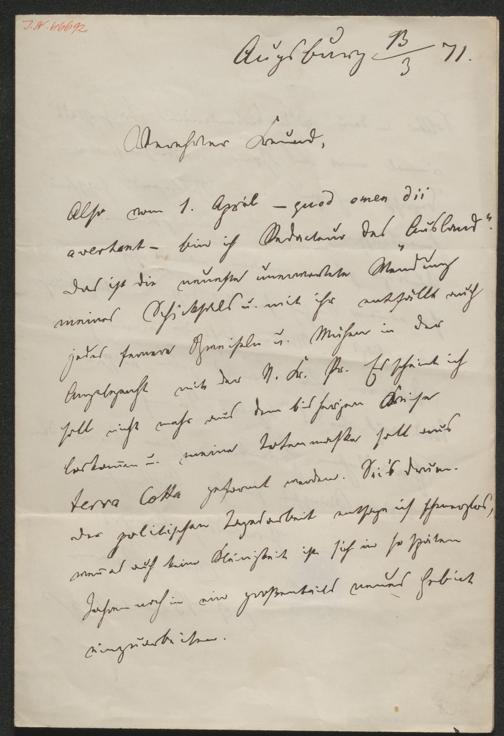 J.N. 46692
Augsburg 13/3 71.
Verehrter Freund,
Also vom 1. April – quod omen dii
avertant – bin ich Redacteur des Ausland".
Das ist die neueste unerwartete Wendung
meines Schicksals u. mit ihr entfällt auch
jedes fernere Zweifeln u. Mühen in der
Angelegenht mit der N. Fr. Pr. Es scheint ich
soll nicht mehr aus dem bisherigen Kreise
loskommen u. meine Totenmaske soll aus
terra Cotta geformt werden. Sei's drum.
der politischen Tagesarbeit entsage ich schmerzlos,
wenn es auch keine Kleinigkeit ist sich in so späten
Jahren noch in ein großentheils neues Gebiet
einzuarbeiten.